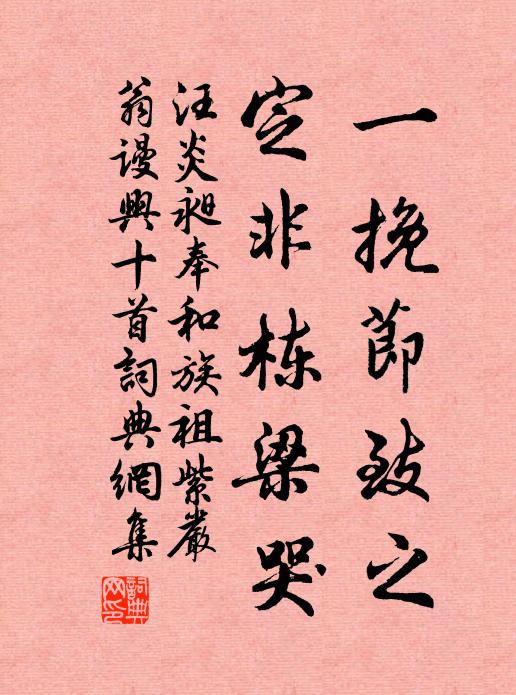 一挽節致之
定非栋梁哭
汪炎昶奉和族祖紫巖
翁谩興十首詞典網集
詞典
网印